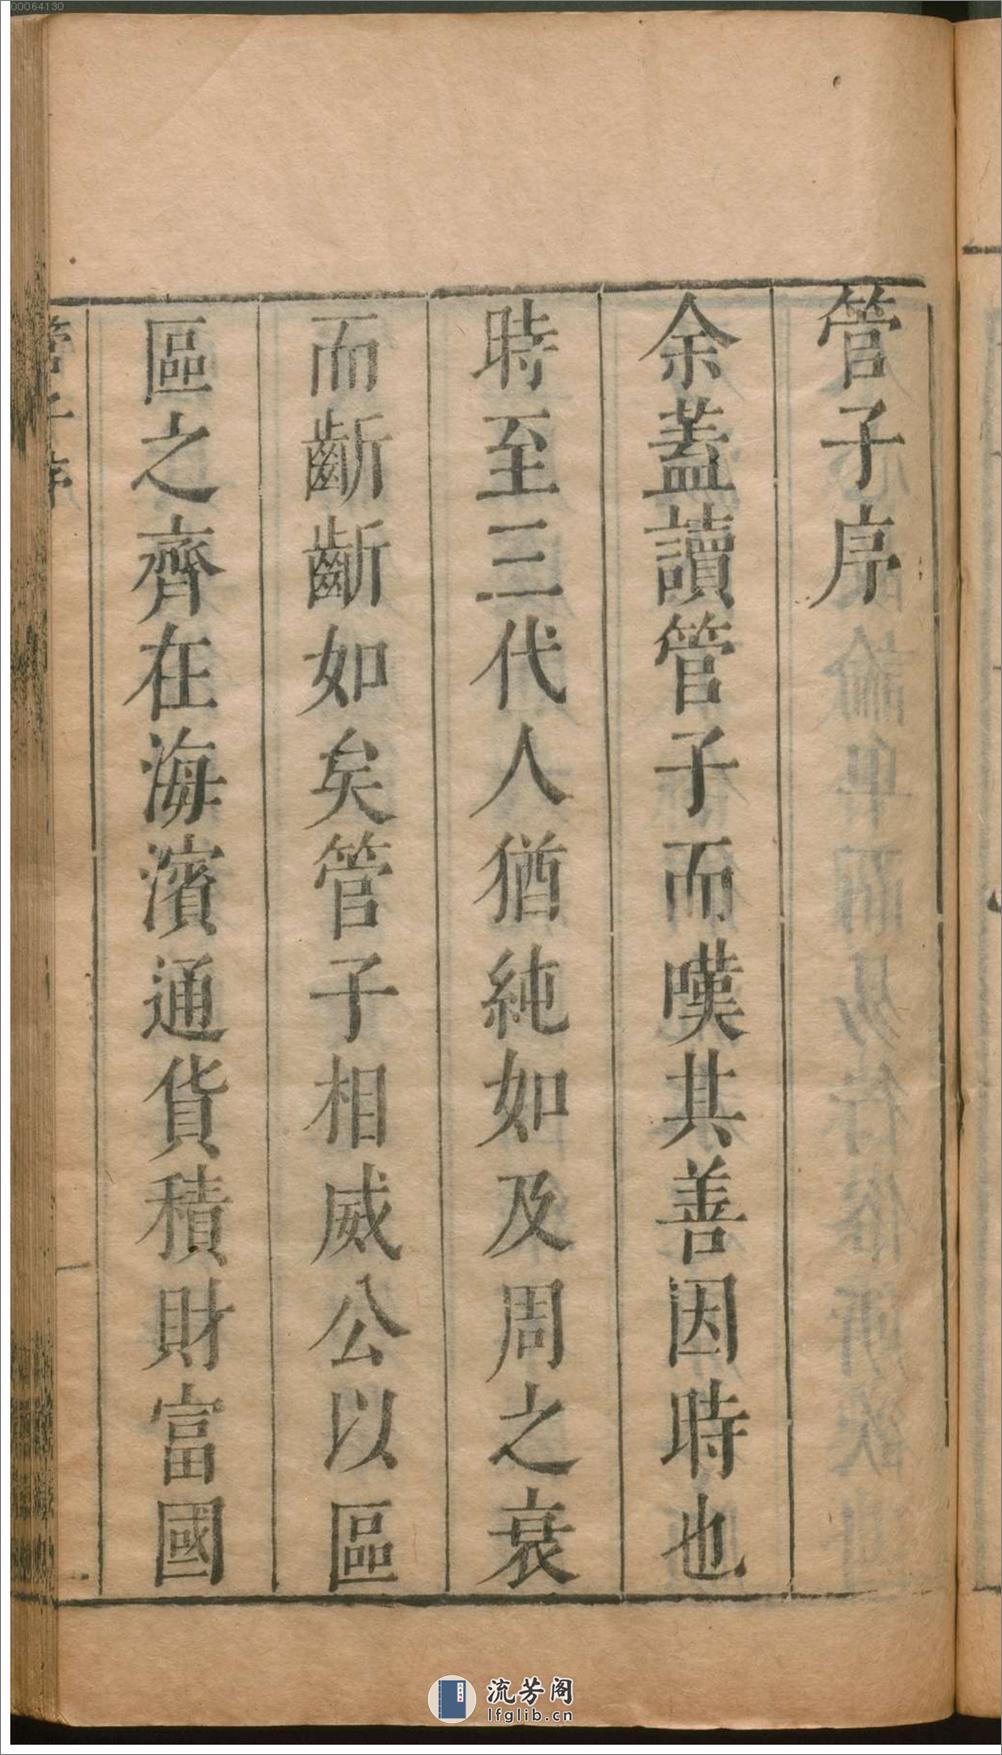 00064130
管子序
余蓋讀管子而嘆其善因時也
時至三代人猶純如及周之衰
而齗齗如矣管子相威公以區
區之齊在海濱通貨積財富國
管子序
一
流芳阁
lfglib.cn